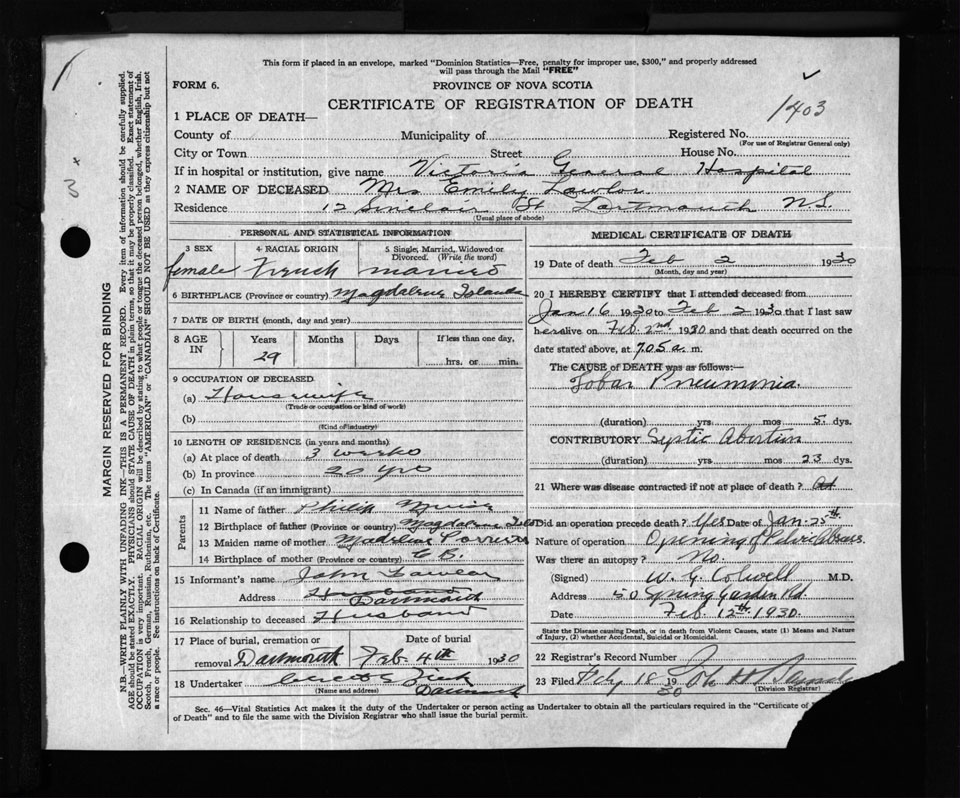 This form if placed in an envelope, marked "Dominion Statistics—Free, penalty for improper use, $300," and properly addressed
will pass through the Mail "FREE"
FORM 6.
PROVINCE OF NOVA SCOTIA
CERTIFICATE OF REGISTRATION OF DEATH
1403
1 PLACE OF DEATH—
County of Municipality of Registered No.
(For use of Registrar General only)
City or Town Street House No.
If in hospital or institution, give name Victoria General Hospital
2 NAME OF DECEASED Mrs Emily Lawlor
Residence 12 Sinclair St Dartmouth N.S.
(Usual place of abode)
MARGIN RESERVED FOR BINDING
N.B.—WRITE PLAINLY WITH UNFADING INK—THIS IS A PERMANENT RECORD. Every item of information should be carefully supplied.
AGE should be stated EXACTLY. PHYSICIANS should STATE CAUSE OF DEATH in plain terms, so that it may be properly classified. Exact statement of
OCCUPATION is very important. RACIAL ORIGIN will be described by stating to what people or tongue the deceased person belonged, whether English, Irish,
Scotch, French, German, Russian, Ruthenian, etc. The terms "AMERICAN" or "CANADIAN" SHOULD NOT BE USED as they express citizenship but not
a race or people. See instructions on back of Certificate.
PERSONAL AND STATISTICAL INFORMATION
3 SEX 4 RACIAL ORIGIN 5 Single, Married, Widowed or
Divorced. (Write the word)
female French married
6 BIRTHPLACE (Province or country) Magdalene Islands
7 DATE OF BIRTH (month, day and year)
8 AGE IN Years Months Days If less than one day,
29 hrs. or min.
9 OCCUPATION OF DECEASED
(a) Housewife
(Trade or occupation or kind of work)
(b)
(Kind of industry)
10 LENGTH OF RESIDENCE (in years and months)
(a) At place of death 3 weeks
(b) In province 20 yrs
(c) In Canada (if an immigrant)
Parents
11 Name of father Philip
12 Birthplace of father (Province or country) Magdalene Isld
13 Maiden name of mother Madeline
14 Birthplace of mother C.B.
15 Informant's name John Lawlor
Address Husband Dartmouth
16 Relationship to deceased Husband
17 Place of burial, cremation or Date of burial
removal Dartmouth Feb 4th 1930
18 Undertaker
(Name and address) Dartmouth
MEDICAL CERTIFICATE OF DEATH
19 Date of death Feb 2 1930
(Month, day and year)
20 I HEREBY CERTIFY that I attended deceased from
Jan 16 1930 to Feb 2 1930 that I last saw
her alive on Feb. 2nd 1930 and that death occurred on the
date stated above, at 7.05 a. m.
The CAUSE of DEATH was as follows:—
Lobar Pneumonia.
(duration) yrs. mos 5 dys.
CONTRIBUTORY Septic Abortion
(duration) yrs mos 23 dys.
21 Where was disease contracted if not at place of death?
Did an operation precede death? Yes Date of Jan. 25th
Nature of operation Opening of Pelvic Abcess.
Was there an autopsy? No.
(Signed) W. G. Colwell M.D.
Address 50 Spring Garden Rd.
Date Feb. 12th 1930.
State the Disease causing Death, or in death from Violent Causes, state (1) Means and Nature of
Injury, (2) whether Accidental, Suicidal or Homicidal.
22 Registrar's Record Number
23 Filed Feby 18 1930
(Division Registrar)
Sec. 46—Vital Statistics Act makes it the duty of the Undertaker or person acting as Undertaker to obtain all the particulars required in the "Certificate of
of Death" and to file the same with the Division Registrar who shall issue the burial permit.